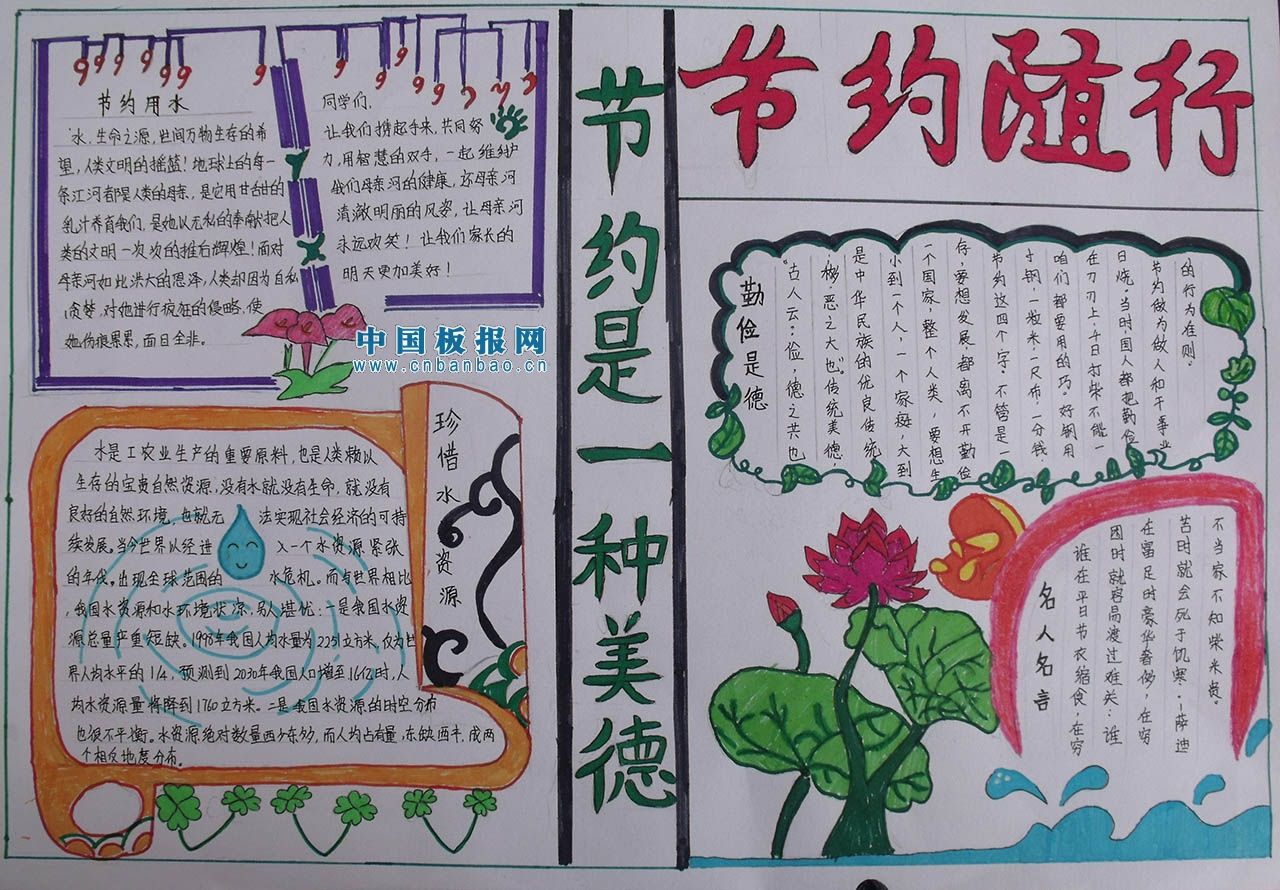 节约用水
水，生命之源，世间万物生存的希
望，人类文明的摇篮！地球上的每一
条江河都是人类的母亲，是它用甘甜的
乳汁养育我们，是她以无私的奉献把人
类的文明一次次的推右辉煌！面对
母亲河如此洪大的恩泽，人类却因为自私
贪婪，对她进行疯狂的侵略，使
她伤痕累累，面目全非。
同学们，
让我们携起手来，共同努
力，用智慧的双手，一起维护
我们母亲河的健康，还母亲河
清澈明丽的风姿，让母亲河
永远欢笑！让我们家长的
明天更加美好！
中国板报网
www.cnbanbao.cn
珍惜水资源
水是工农业生产的重要原料，也是人类赖以
生存的宝贵自然资源，没有水就没有生命，就没有
良好的自然环境，也就无法实现社会经济的可持
续发展。当今世界以经进入一个水资源紧张
的年代。出现全球范围的水危机。而与世界相比
，我国水资源和水环境状况，另人堪忧：一是我国水资
源总量严重短缺。1998年我国人均水量为2251立方米，仅为世
界人均水平的1/4，预测到2030年我国人口增至16亿时，人
均水资源量将降到1760立方米。二是我国水资源的时空分布
也很不平衡。水资源绝对数量西少东多，而人均占有量，东缺西丰，成两
个相反地度分布。
节约是一种美德
节约随行
勤俭是德
“古人云：俭，德之共也
，侈，恶之大也。”传统美德，
是中华民族的优良传统
小到一个人，一个家庭，大到
一个国家，整个人类，要想生
存，要想发展，都离不开勤俭
节约这四个字，不管是一
寸钢，一粒米，一尺布，一分钱，
咱们都要用的巧。好钢用
在刀刃上，千日打柴不能一
日烧。当时，国人都把勤俭
节约做为做人和干事业
的行为准则。
名人名言
谁在平日节衣缩食，在穷
困时就容易渡过难关；谁
在富足时豪华奢侈，在穷
苦时就会死于饥寒。——萨迪
不当家不知柴米贵。